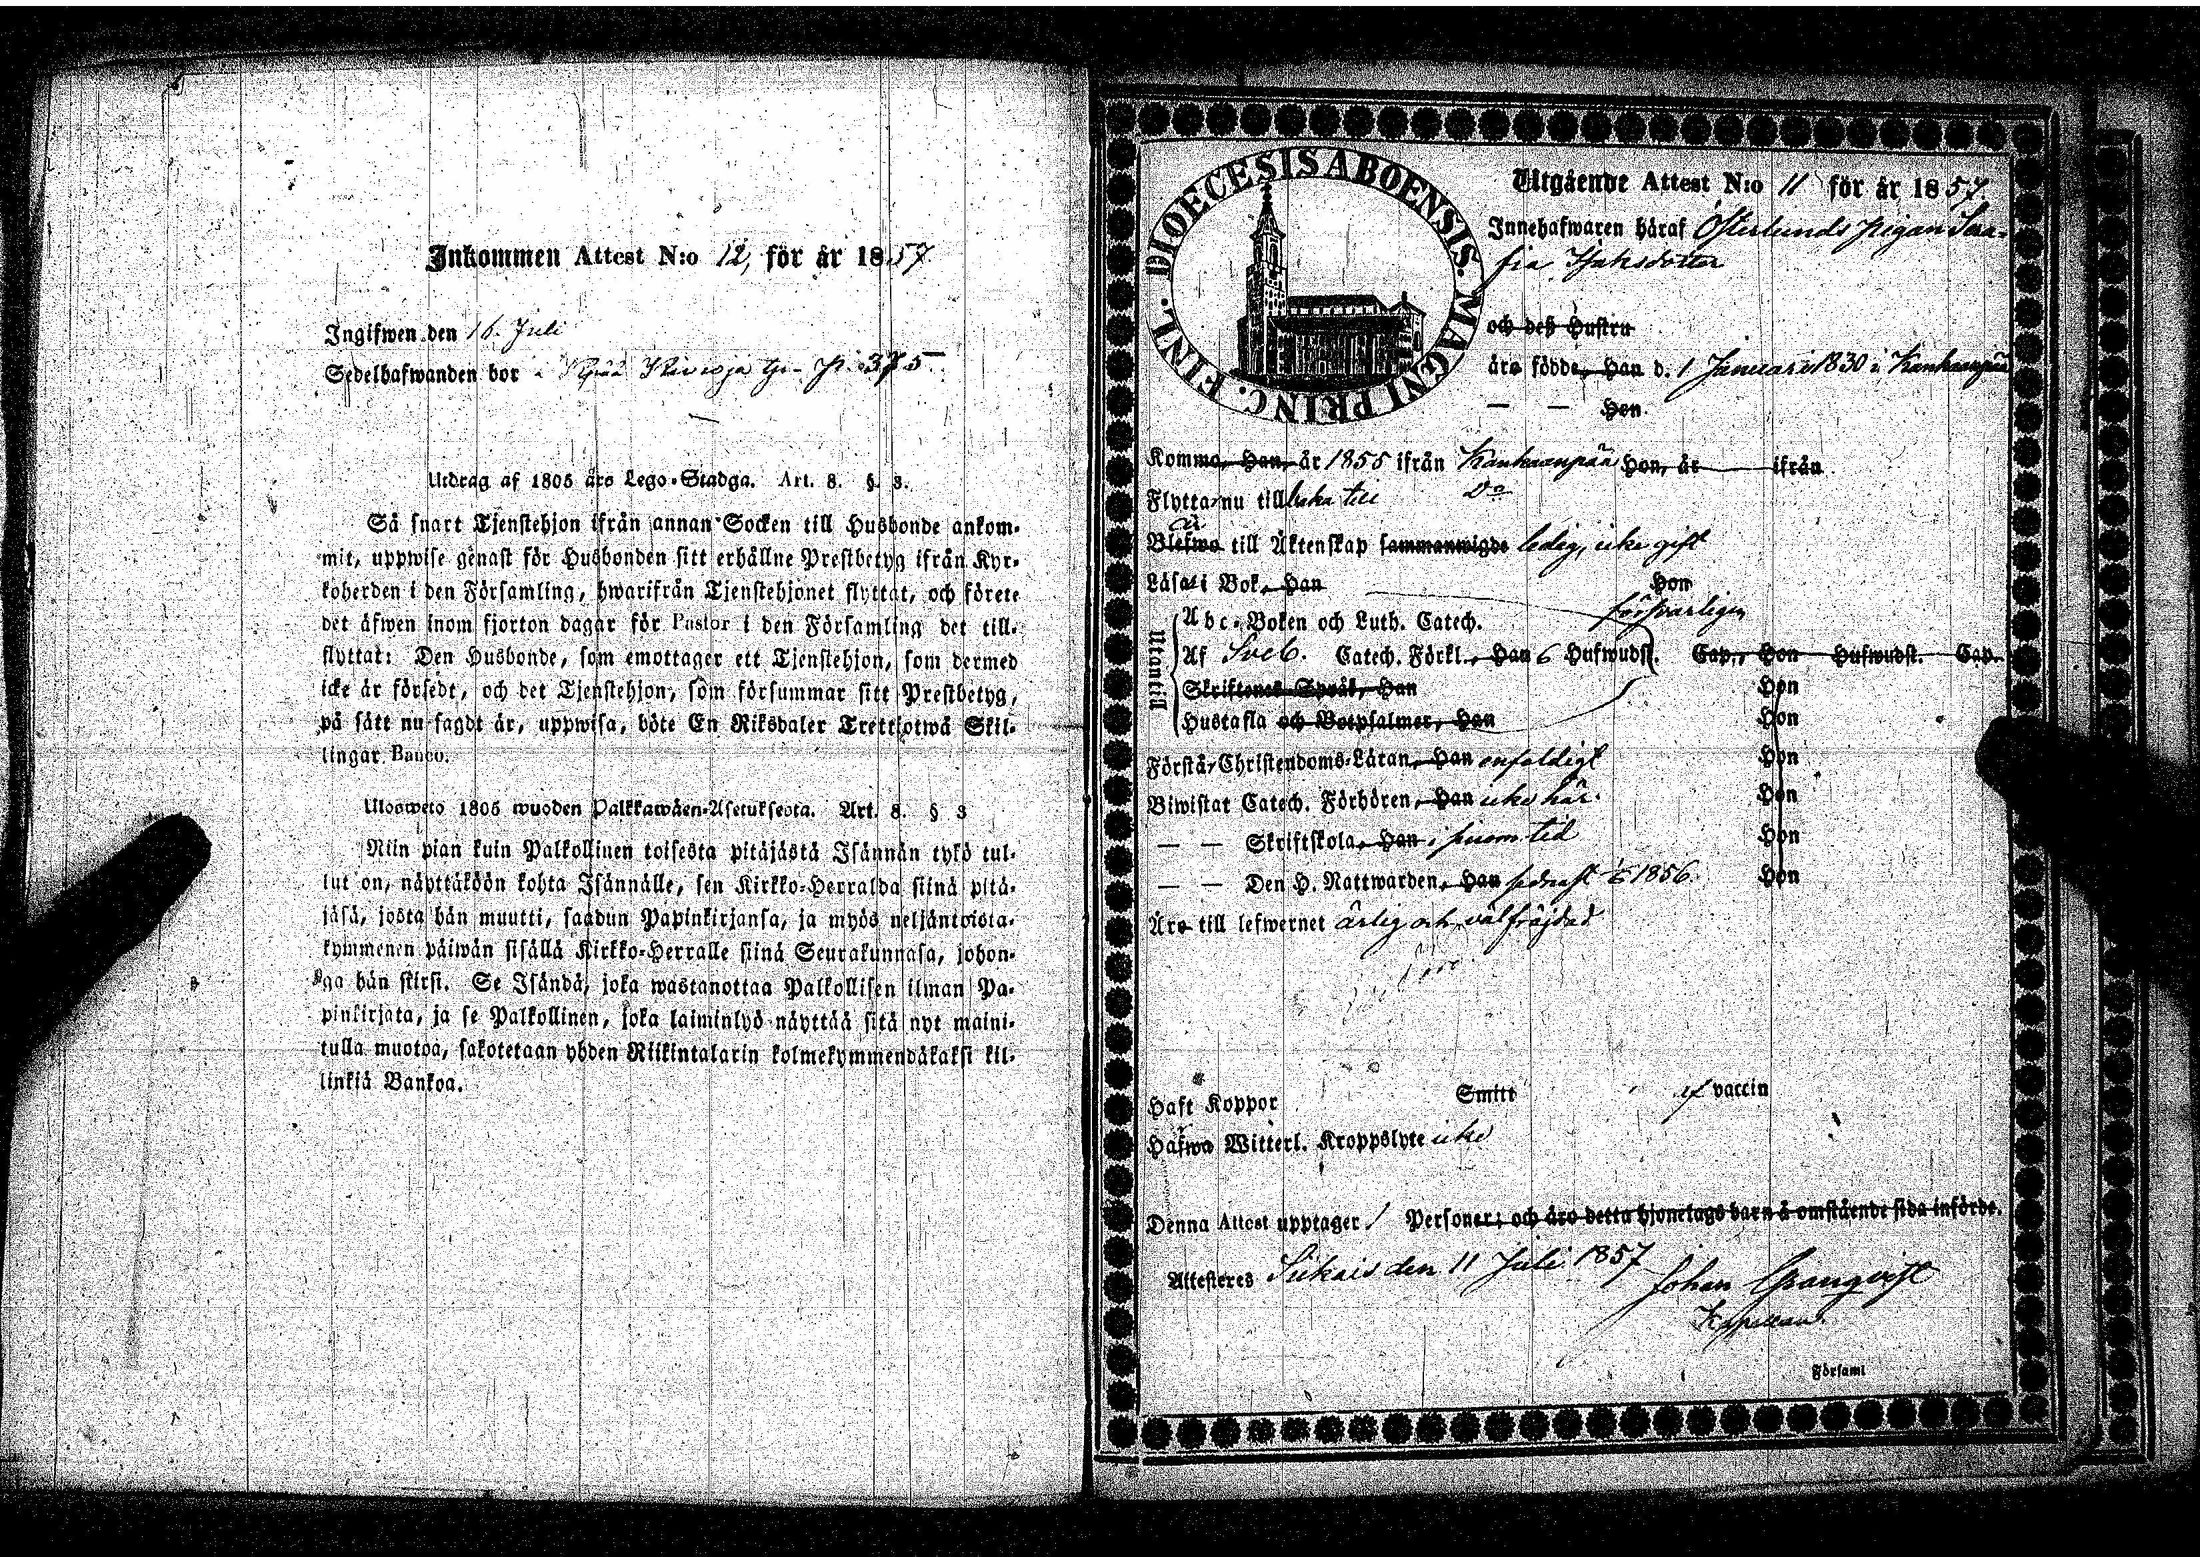 Inkommen Attest N:o 12, för år 1857
Ingifwen den 16. Juli
Sedelhafwanden bor 375
Utdrag af 1805 års Lego-Stadga. Art. 8. §. 3.
Så snart Tjenstehjon ifrån annan Socken till Husbonde ankom-
mit, uppwise genast för Husbonden sitt erhållne Prestbetyg ifrån Kyr-
koherden i den Församling, hwarifrån Tjenstehjonet flyttat, och förete
det äfwen inom fjorton dagar för Pastor i den Församling det till-
flyttat: Den Husbonde, som emottager ett Tjenstehjon, som dermed
icke är försedt, och det Tjenstehjon, som försummar sitt Prestbetyg,
på sätt nu sagdt är, uppwisa, böte En Riksdaler Trettiotwå Skil-
lingar Banco.
Ulosweto 1805 wuoden Palkkawäen-Asetuksesta. Art. 8. § 3
Niin pian kuin Palkollinen toisesta pitäjästä Isännän tykö tul-
lut on, näyttäköön kohta Isännälle, sen Kirkko-Herralda siinä pitä-
jäsä, josta hän muutti, saadun Papinkirjansa, ja myös neljäntoista-
kymmenen päiwän sisällä Kirkko-Herralle siinä Seurakunnasa, johon-
ga hän siirsi. Se Isändä, joka wastanottaa Palkollisen ilman Pa-
pinkirjata, ja se Palkollinen, joka laiminlyö näyttää sitä nyt maini-
tulla muotoa, sakotetaan yhden Riikintalarin kolmekymmendäkaksi kil-
linkiä Bankoa.
DIOECESIS ABOENSIS. MAGNI PRINC. FINL.
Utgående Attest N:o 11 för år 1857
Innehafwaren häraf Österlunds pigan Sera-
fia Isaksdotter
och deß Hustru
äro födde, Han d. 1 Januari 1830 i Kankaanpää
— — Hon
Komma, Han, år 1855 ifrån Kankaanpää Hon, år ifrån
Flytta nu tillbaka till Do
är
Blefwo till Äktenskap sammanwigde ledig, icke gift
Läsa i Bok, Han Hon
försvarligen
Utantill
Abc-Boken och Luth. Catech.
Af Sveb. Catech. Förkl., Han 6 Hufwudst. Cap., Hon Hufwudst. Cap.
Skriftenes Språk, Han Hon
Hustafla och Botpsalmer, Han Hon
Förstå Christendoms-Läran, Han enfaldigt Hon
Biwistat Catech. Förhören, Han icke här. Hon
— — Skriftskola, Han i sinom tid Hon
— — Den H. Nattwarden, Han sednast 1856. Hon
Äro till lefwernet ärlig och välfräjdad
Haft Koppor Smitt af vaccin
Hafwa Witterl. Kroppslyte icke
Denna Attest upptager 1 Personer; och äro detta hjonelags barn å omstående sida införde.
Attesteres Siikais den 11 Juli 1857
Johan Granqvist
Kapellan.
Församl